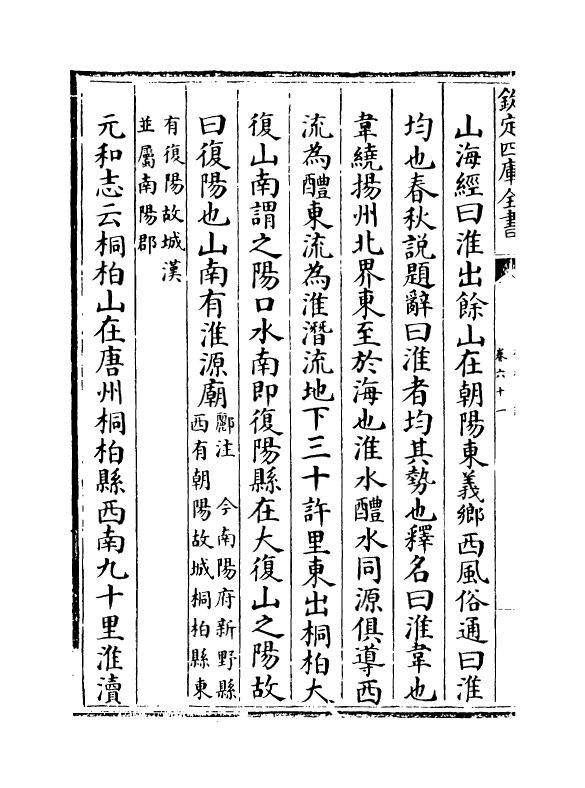 欽定四庫全書
卷六十一
山海經曰淮出餘山在朝陽東義鄉西風俗通曰淮
均也春秋説題辭曰淮者均其勢也釋名曰淮韋也
韋繞揚州北界東至於海也淮水醴水同源俱導西
流為醴東流為淮潛流地下三十許里東出桐柏大
復山南謂之陽口水南即復陽縣在大復山之陽故
曰復陽也山南有淮源廟酈注 今南陽府新野縣
西有朝陽故城桐柏縣東
有復陽故城漢
並屬南陽郡
元和志云桐柏山在唐州桐柏縣西南九十里淮瀆